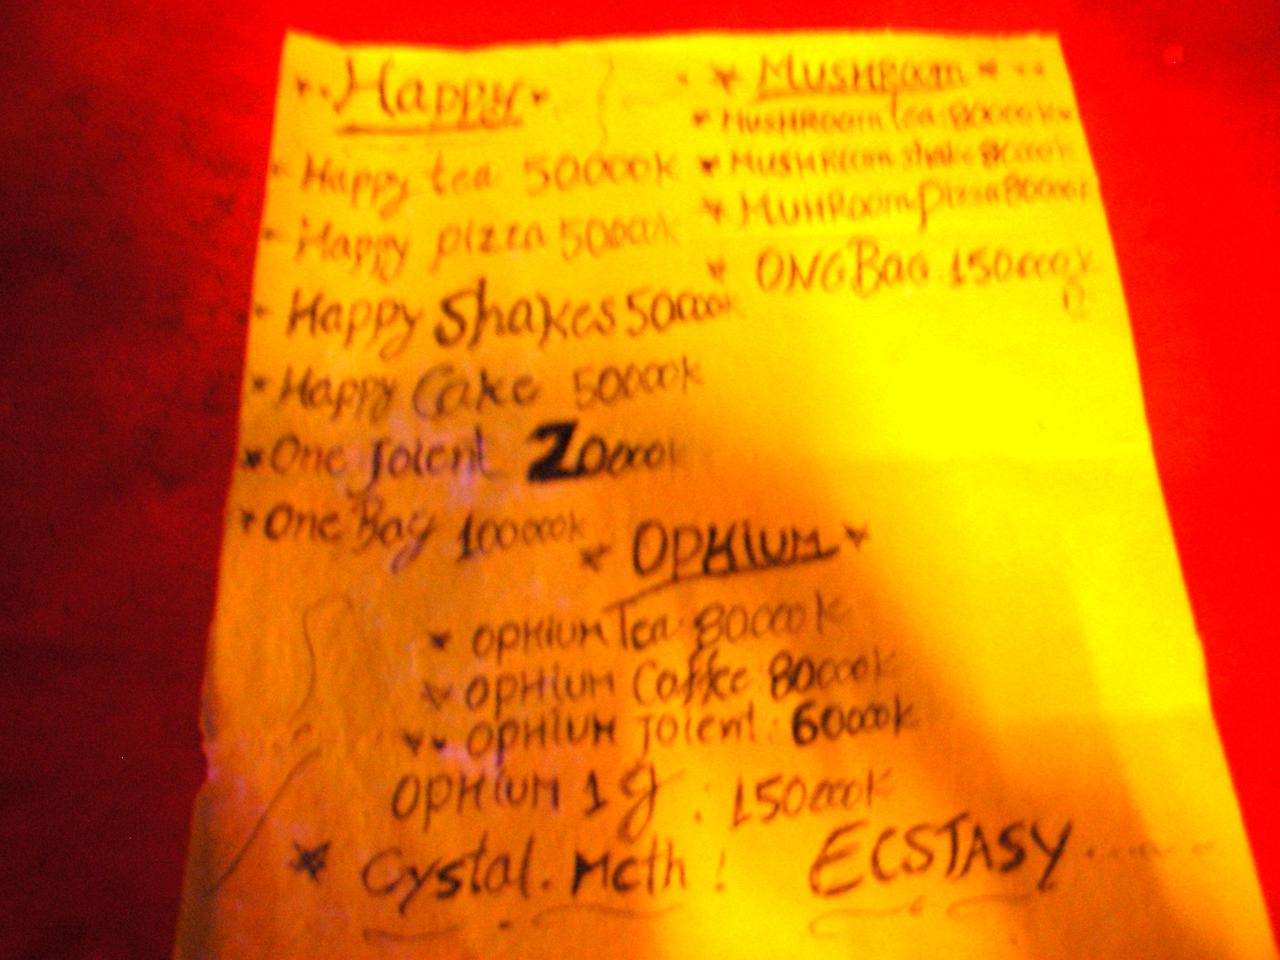 Happy
Happy tea 50000k
Happy pizza 50000k
Happy Shakes 50000k
Happy Cake 50000k
One Joient 20000k
One Bag 100000k
MUSHRoom
MUSHRoom tea 80000k
MUSHRoom shake 80000k
MUHRoom pizza 80000k
ONG BaG 150000k
OPHIUM
OPHIUM Tea 80000k
OPHIUM Coffee 80000k
OPHIUM Joient: 60000k
OPHIUM 1g: 150000k
Cystal. Meth! ECSTASY